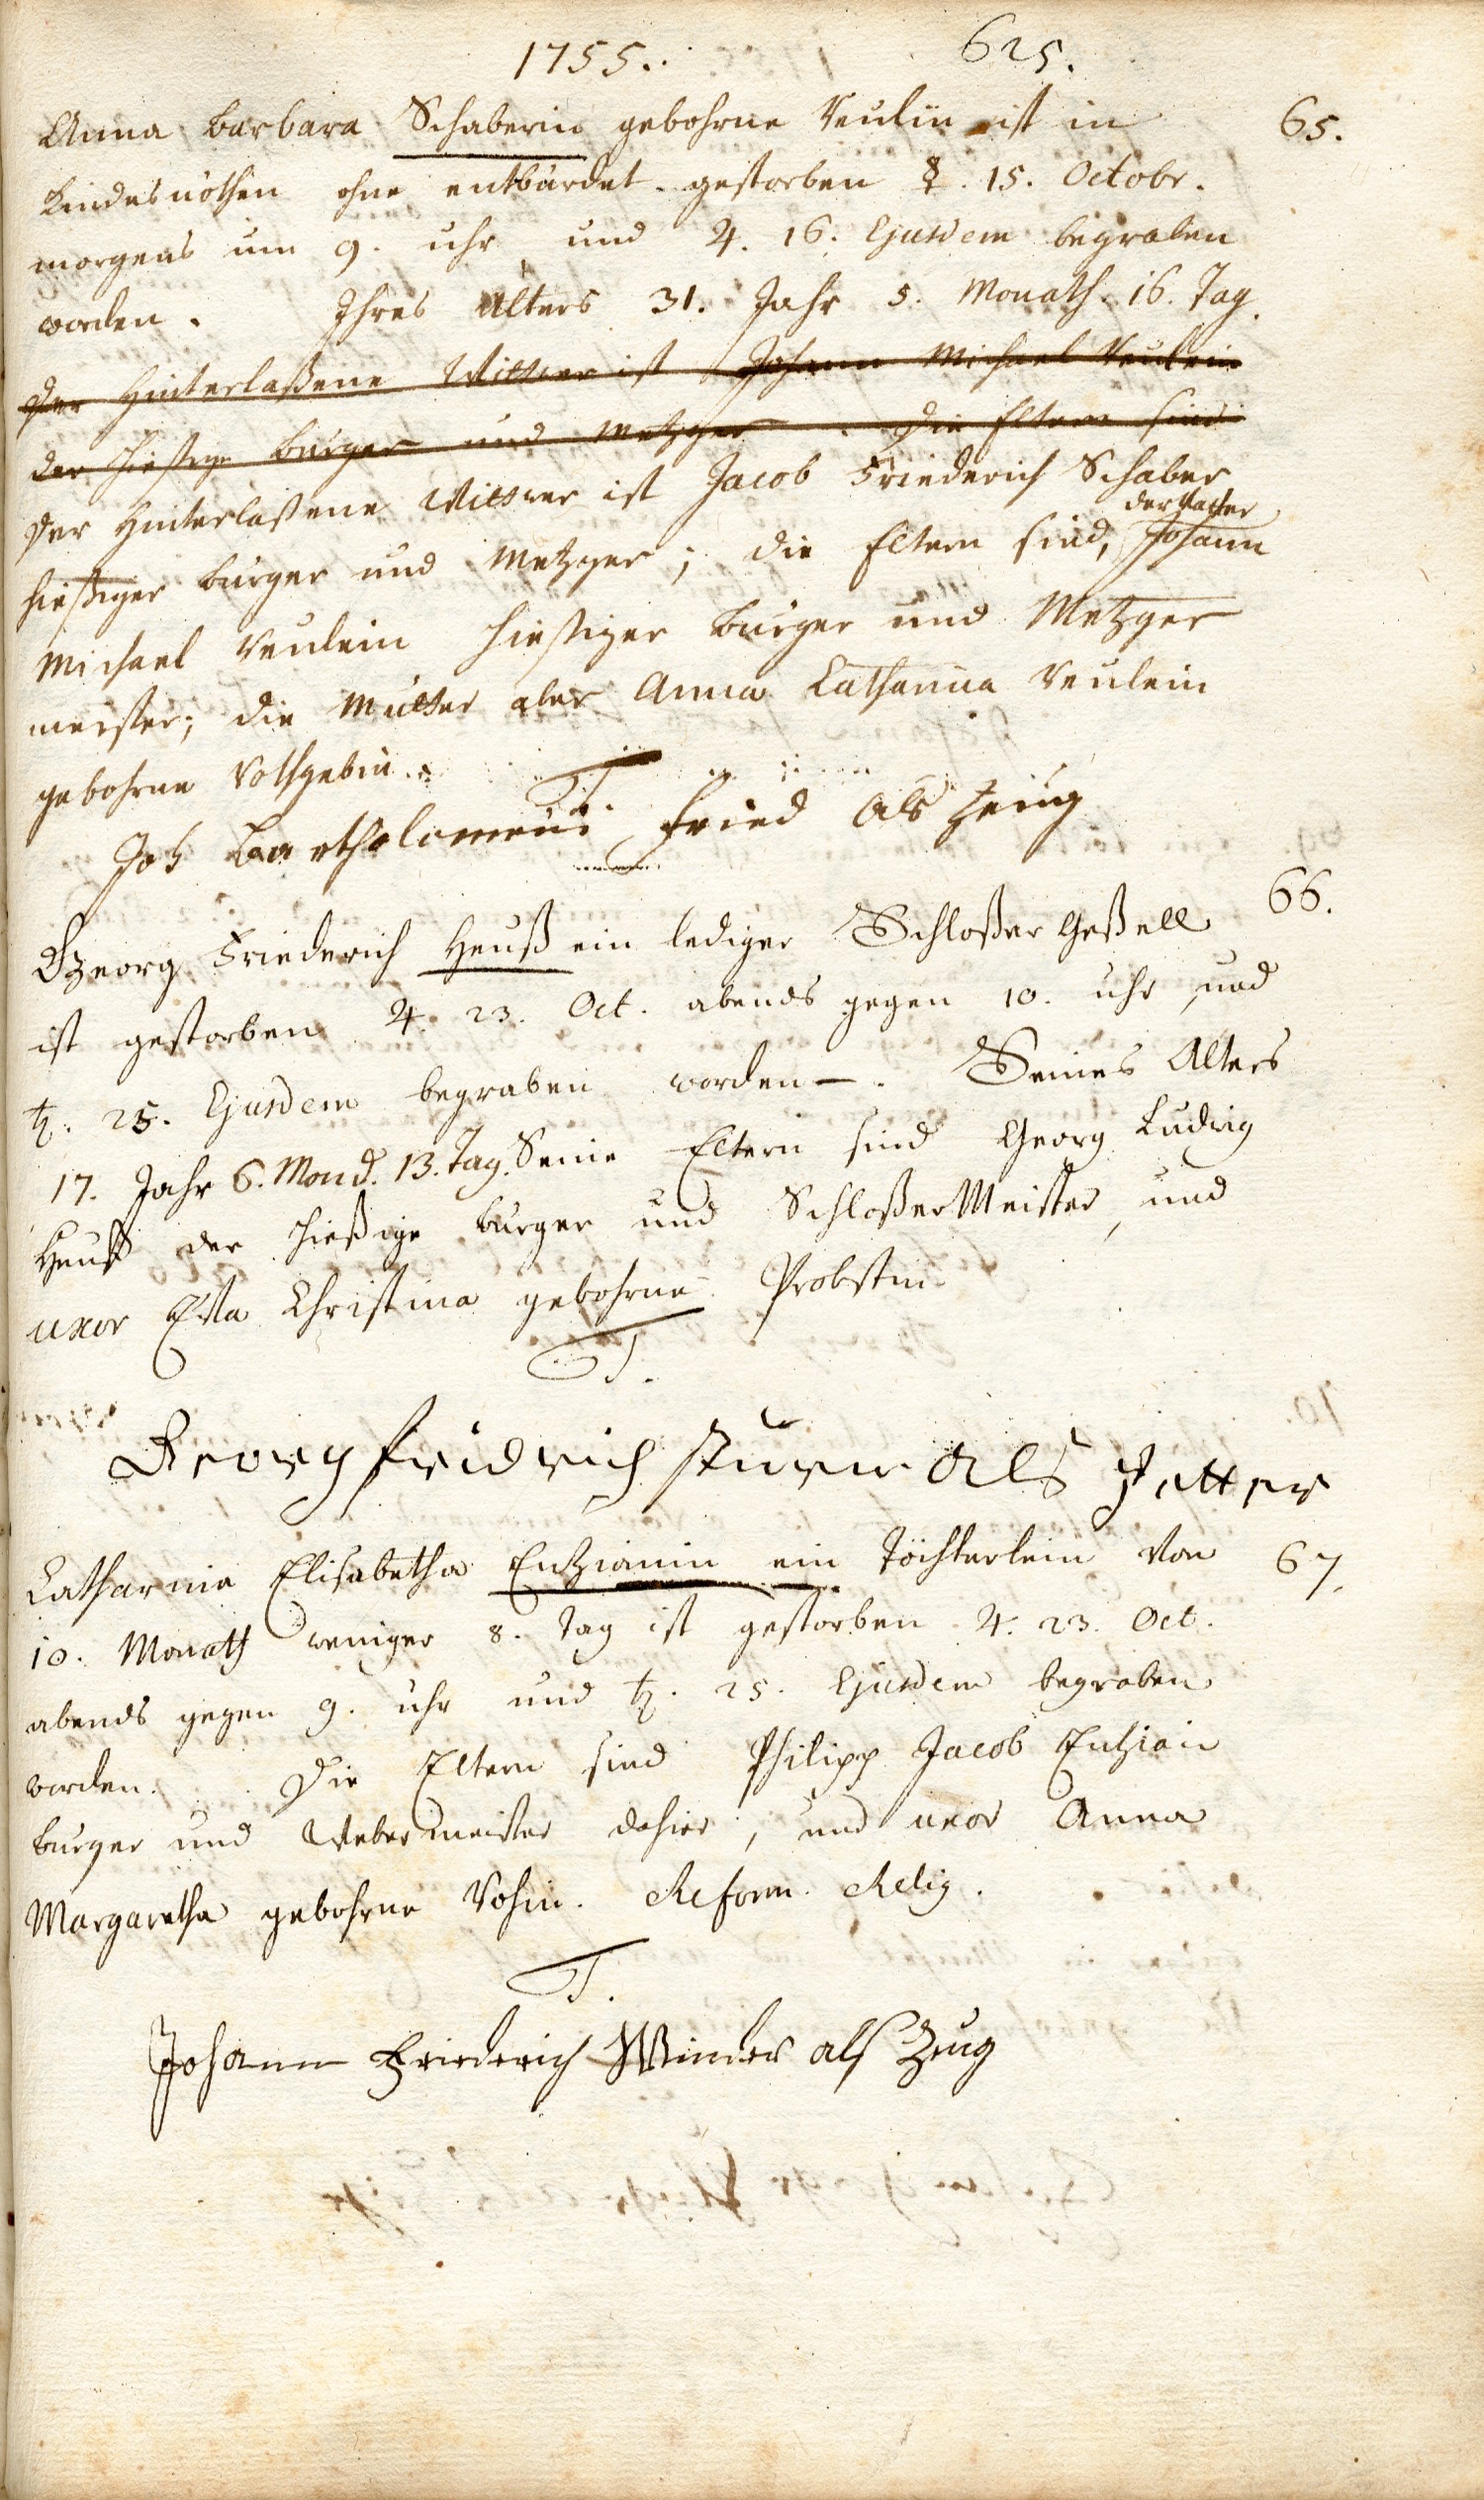 1755. 625.
Anna Barbara Schaberin gebohrne Veulin ist in 65.
Kindesnöthen ohne entbürdet gestorben ☿. 15. Octobr.
morgens um 9. uhr und ♃. 16. Ejusdem begraben
worden. Ihres Alters 31. Jahr 5. Monath. 16. Tag.
Der Hinterlaßene Wittwer ist Johann Michael Veulein
der hiesige burger und Metzger. Die Eltern sind
Der Hinterlaßene Wittwer ist Jacob Friederich Schaber
der Vatter
hießiger burger und Metzger; die Eltern sind, Johann
Michael Veulein hießiger burger und Metzger
meister; die Mutter aber Anna Catharina Veulein
gebohrne
T.
Joh Bartholomeus Fried als zeug
Georg Friederich Heuß ein lediger Schloßer Geßell 66.
ist gestorben ♃. 23. Oct. abends gegen 10. uhr, und
♄. 25. Ejusdem begraben worden. Seines Alters
17. Jahr 6. Mond. 13. Tag. Seine Eltern sind Georg Ludwig
Heuß der hießige burger und Schloßer Meister, und
uxor Eva Christina gebohrne Probstin
T.
Georg fridrich sturm als petter
Catharina Elisabetha Entzianin ein Töchterlein von 67.
10. Monath weniger 8. Tag ist gestorben ♃. 23. Oct.
abends gegen 9. uhr und ♄. 25. Ejusdem begraben
worden. Die Eltern sind Philipp Jacob Entzian
burger und Webermeister dahier, und uxor Anna
Margaretha gebohrne Vohin. Reform. Relig.
T.
Johann Friederich Winder als Zeug